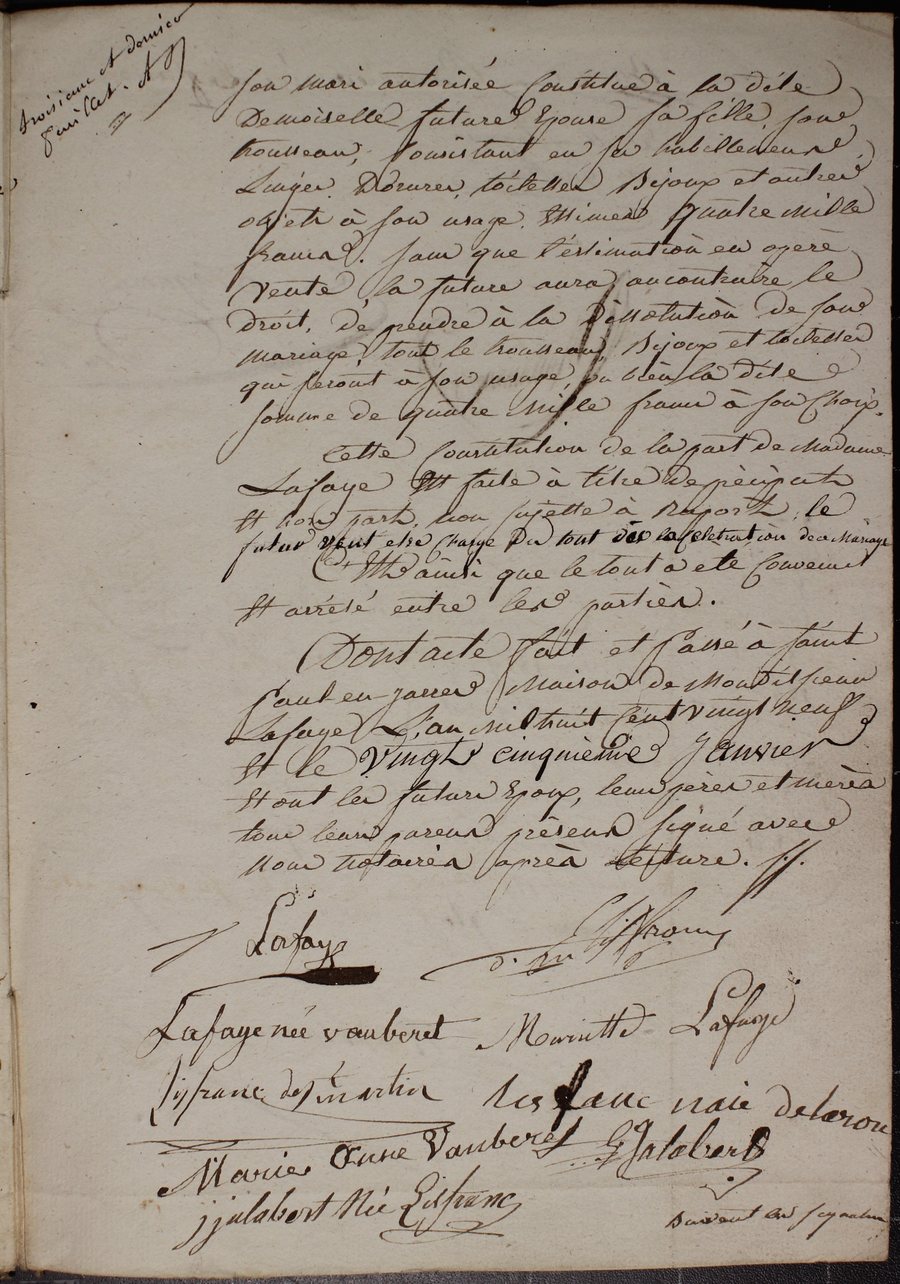 troisieme et dernier
feuillet.
son mari autorisée Constitue à la dite
Demoiselle future Epouse sa fille, son
trousseau, Consistant en ses habillemens
Linges Dorures, toilettes Bijoux et autres
objets à son usage, Estimés quatre mille
francs. sans que l'éstimation en opère
vente, la future aura au contraire le
droit, de prendre à la Dissolution de son
mariage, tout le trousseau, Bijoux et toilettes
qui seront à son usage, ou bien la dite
somme de quatre mille francs à son Choix.
Cette Constitution de la part de Madame
Lafaye Est faite à titre de préciput
Et hors part, non sujette à raport, le
futur veut etre chargé du tout dès la célébration de Mariage
C'Est ainsi que le tout a eté Convenu
Et arrété entre les parties.
Dont acte fait et Passé à saint
Paul en jarrez Maison de Mondit sieur
Lafaye L'an mil huit Cent vingt neuf
Et le vingt cinquième Janvier
Et ont les futurs Epoux, leurs pères et mères
tous leurs parens présens signé avec
nous notaires après Lecture. ff.
Lafaye
Lafaye née vauberet Mariette Lafaye
Lisfranc de St martin Lisfranc naie delarou
Marie Anne Vauberet Jalabert
jjalabert Née Lisfranc
Suivent les signatures